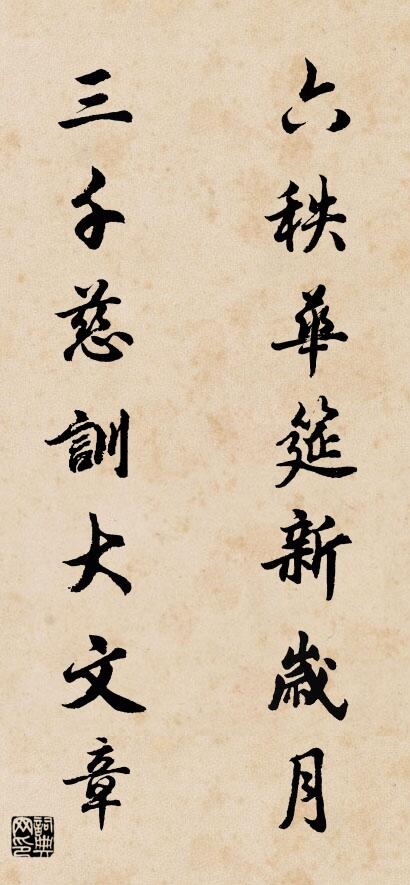 六秩華筵新歲月
三千慈訓大文章
詞典网印